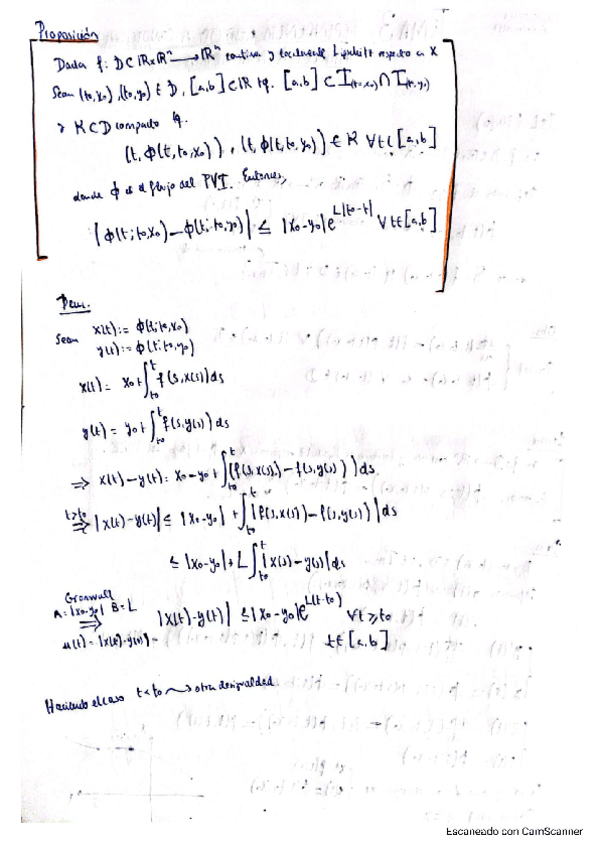 Proposición
Dada f: D⊂ℝxℝⁿ → ℝⁿ continua y localmente Lipschitz respecto a x
Sean (t₀,x₀), (t₀,y₀) ∈ D, [a,b]⊂ℝ tq. [a,b] ⊂ I(t₀,x₀) ∩ I(t₀,y₀)
y K⊂D compacto tq.
(t, ϕ(t,t₀,x₀)), (t, ϕ(t,t₀,y₀)) ∈ K ∀t∈[a,b]
donde ϕ es el flujo del PVI. Entonces,
|ϕ(t;t₀,x₀) − ϕ(t;t₀,y₀)| ≤ |x₀−y₀|e^{L|t₀−t|} ∀t∈[a,b]
Dem.
Sean x(t):= ϕ(t;t₀,x₀)
y(t):= ϕ(t;t₀,y₀)
x(t) = x₀+∫_{t₀}^{t} f(s,x(s))ds
y(t) = y₀+∫_{t₀}^{t} f(s,y(s))ds
⇒ x(t)−y(t) = x₀−y₀+∫_{t₀}^{t} (f(s,x(s))−f(s,y(s)))ds
t>t₀ ⇒ |x(t)−y(t)| ≤ |x₀−y₀| + ∫_{t₀}^{t} |f(s,x(s))−f(s,y(s))|ds
≤ |x₀−y₀|+L∫_{t₀}^{t} |x(s)−y(s)|ds
Gronwall
A=|x₀−y₀| B=L ⇒ |x(t)−y(t)| ≤ |x₀−y₀|e^{L(t−t₀)} ∀t≥t₀
u(t)=|x(t)−y(t)|= t∈[a,b]
Haciendo el caso t<t₀ ⇝ otra desigualdad
Escaneado con CamScanner